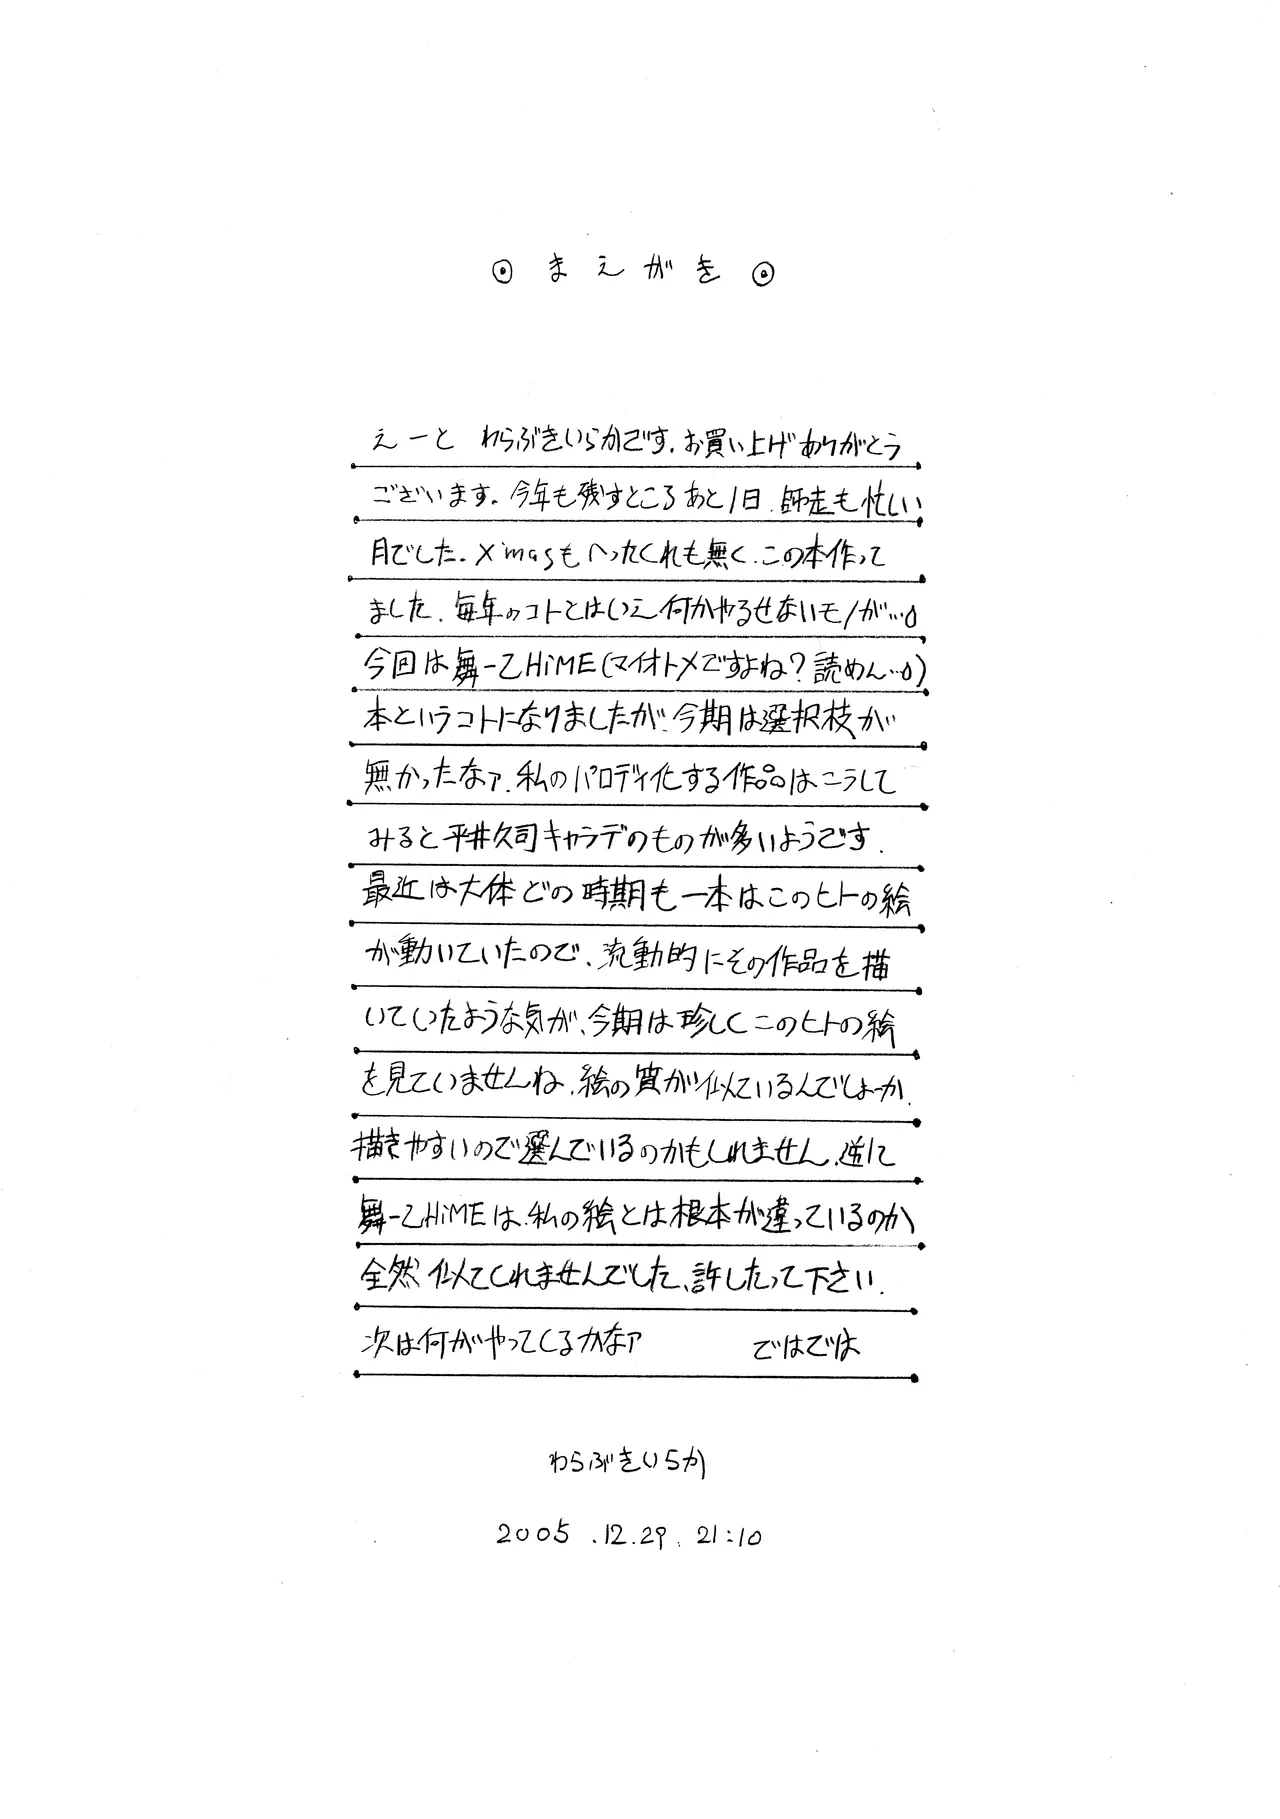 ◎ まえがき ◎
えーと わらぶきいらかです。お買い上げありがとう
ございます。今年も残すところあと1日、師走も忙しい
月でした。X'masもへったくれも無く、この本作って
ました。毎年のコトとはいえ何かやるせないモノが…
今回は舞-乙HiME(マイオトメですよね?読めん…)
本というコトになりましたが、今期は選択枝が
無かったなァ、私のパロディ化する作品はこうして
みると平井久司キャラデのものが多いようです。
最近は大体どの時期も一本はこのヒトの絵
が動いていたので、流動的にその作品を描
いていたような気が、今期は珍しくこのヒトの絵
を見ていませんね、絵の質が似ているんでしょーか、
描きやすいので選んでいるのかもしれません、逆に
舞-乙HiMEは、私の絵とは根本が違っているのか
全然似てくれませんでした、許したって下さい。
次は何がやってくるかなァ ではでは
わらぶきいらか
2005.12.29. 21:10